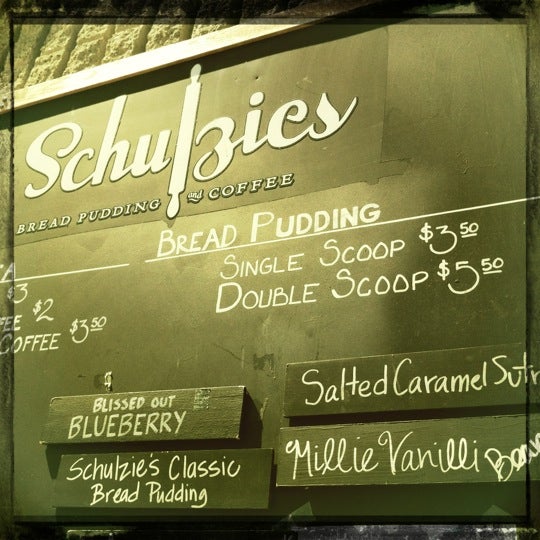 Schulzies
BREAD PUDDING and COFFEE
BREAD PUDDING
SINGLE SCOOP $3.50
DOUBLE SCOOP $5.50
$3
$2
COFFEE $3.50
BLISSED OUT
BLUEBERRY
Schulzie's Classic
Bread Pudding
Salted Caramel
Millie Vanilli